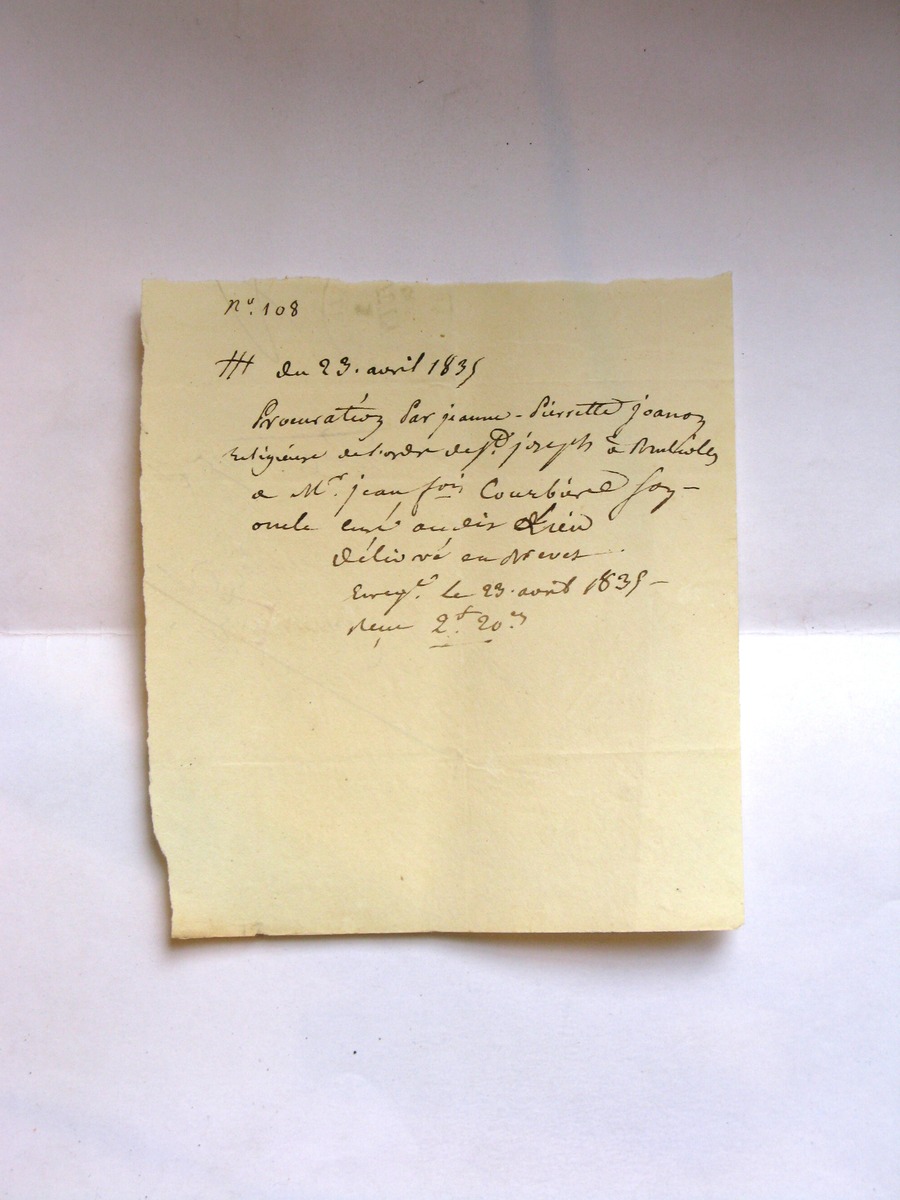 N°. 108
du 23. avril 1835
Procuration Par jeanne-Pierrette joanon
Religieuse de l'ordre de St. joseph à
a Mr. jean fois Courbière son
oncle curé audit Lieu
délivré en Brevet
Enregé. Le 23. avril 1835
Reçu 2f. 20c